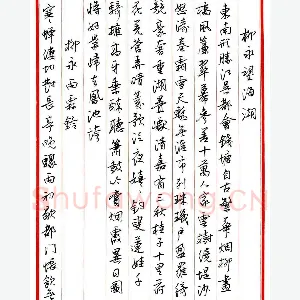 柳永望海潮
東南形勝江吳都會錢塘自古繁華煙柳畫
橋風簾翠幕參差十萬人家雲樹繞堤沙
怒濤卷霜雪天塹無涯市列珠璣戶盈羅綺
競豪奢重湖疊巘清嘉有三秋桂子十里荷
花羌管弄晴菱歌泛夜嬉嬉釣叟蓮娃千
騎擁高牙乘醉聽簫鼓吟賞煙霞異日圖
將好景歸去鳳池誇
柳永雨霖鈴
寒蟬淒切對長亭晚驟雨初歇都門帳飲無
Shufawang.CN